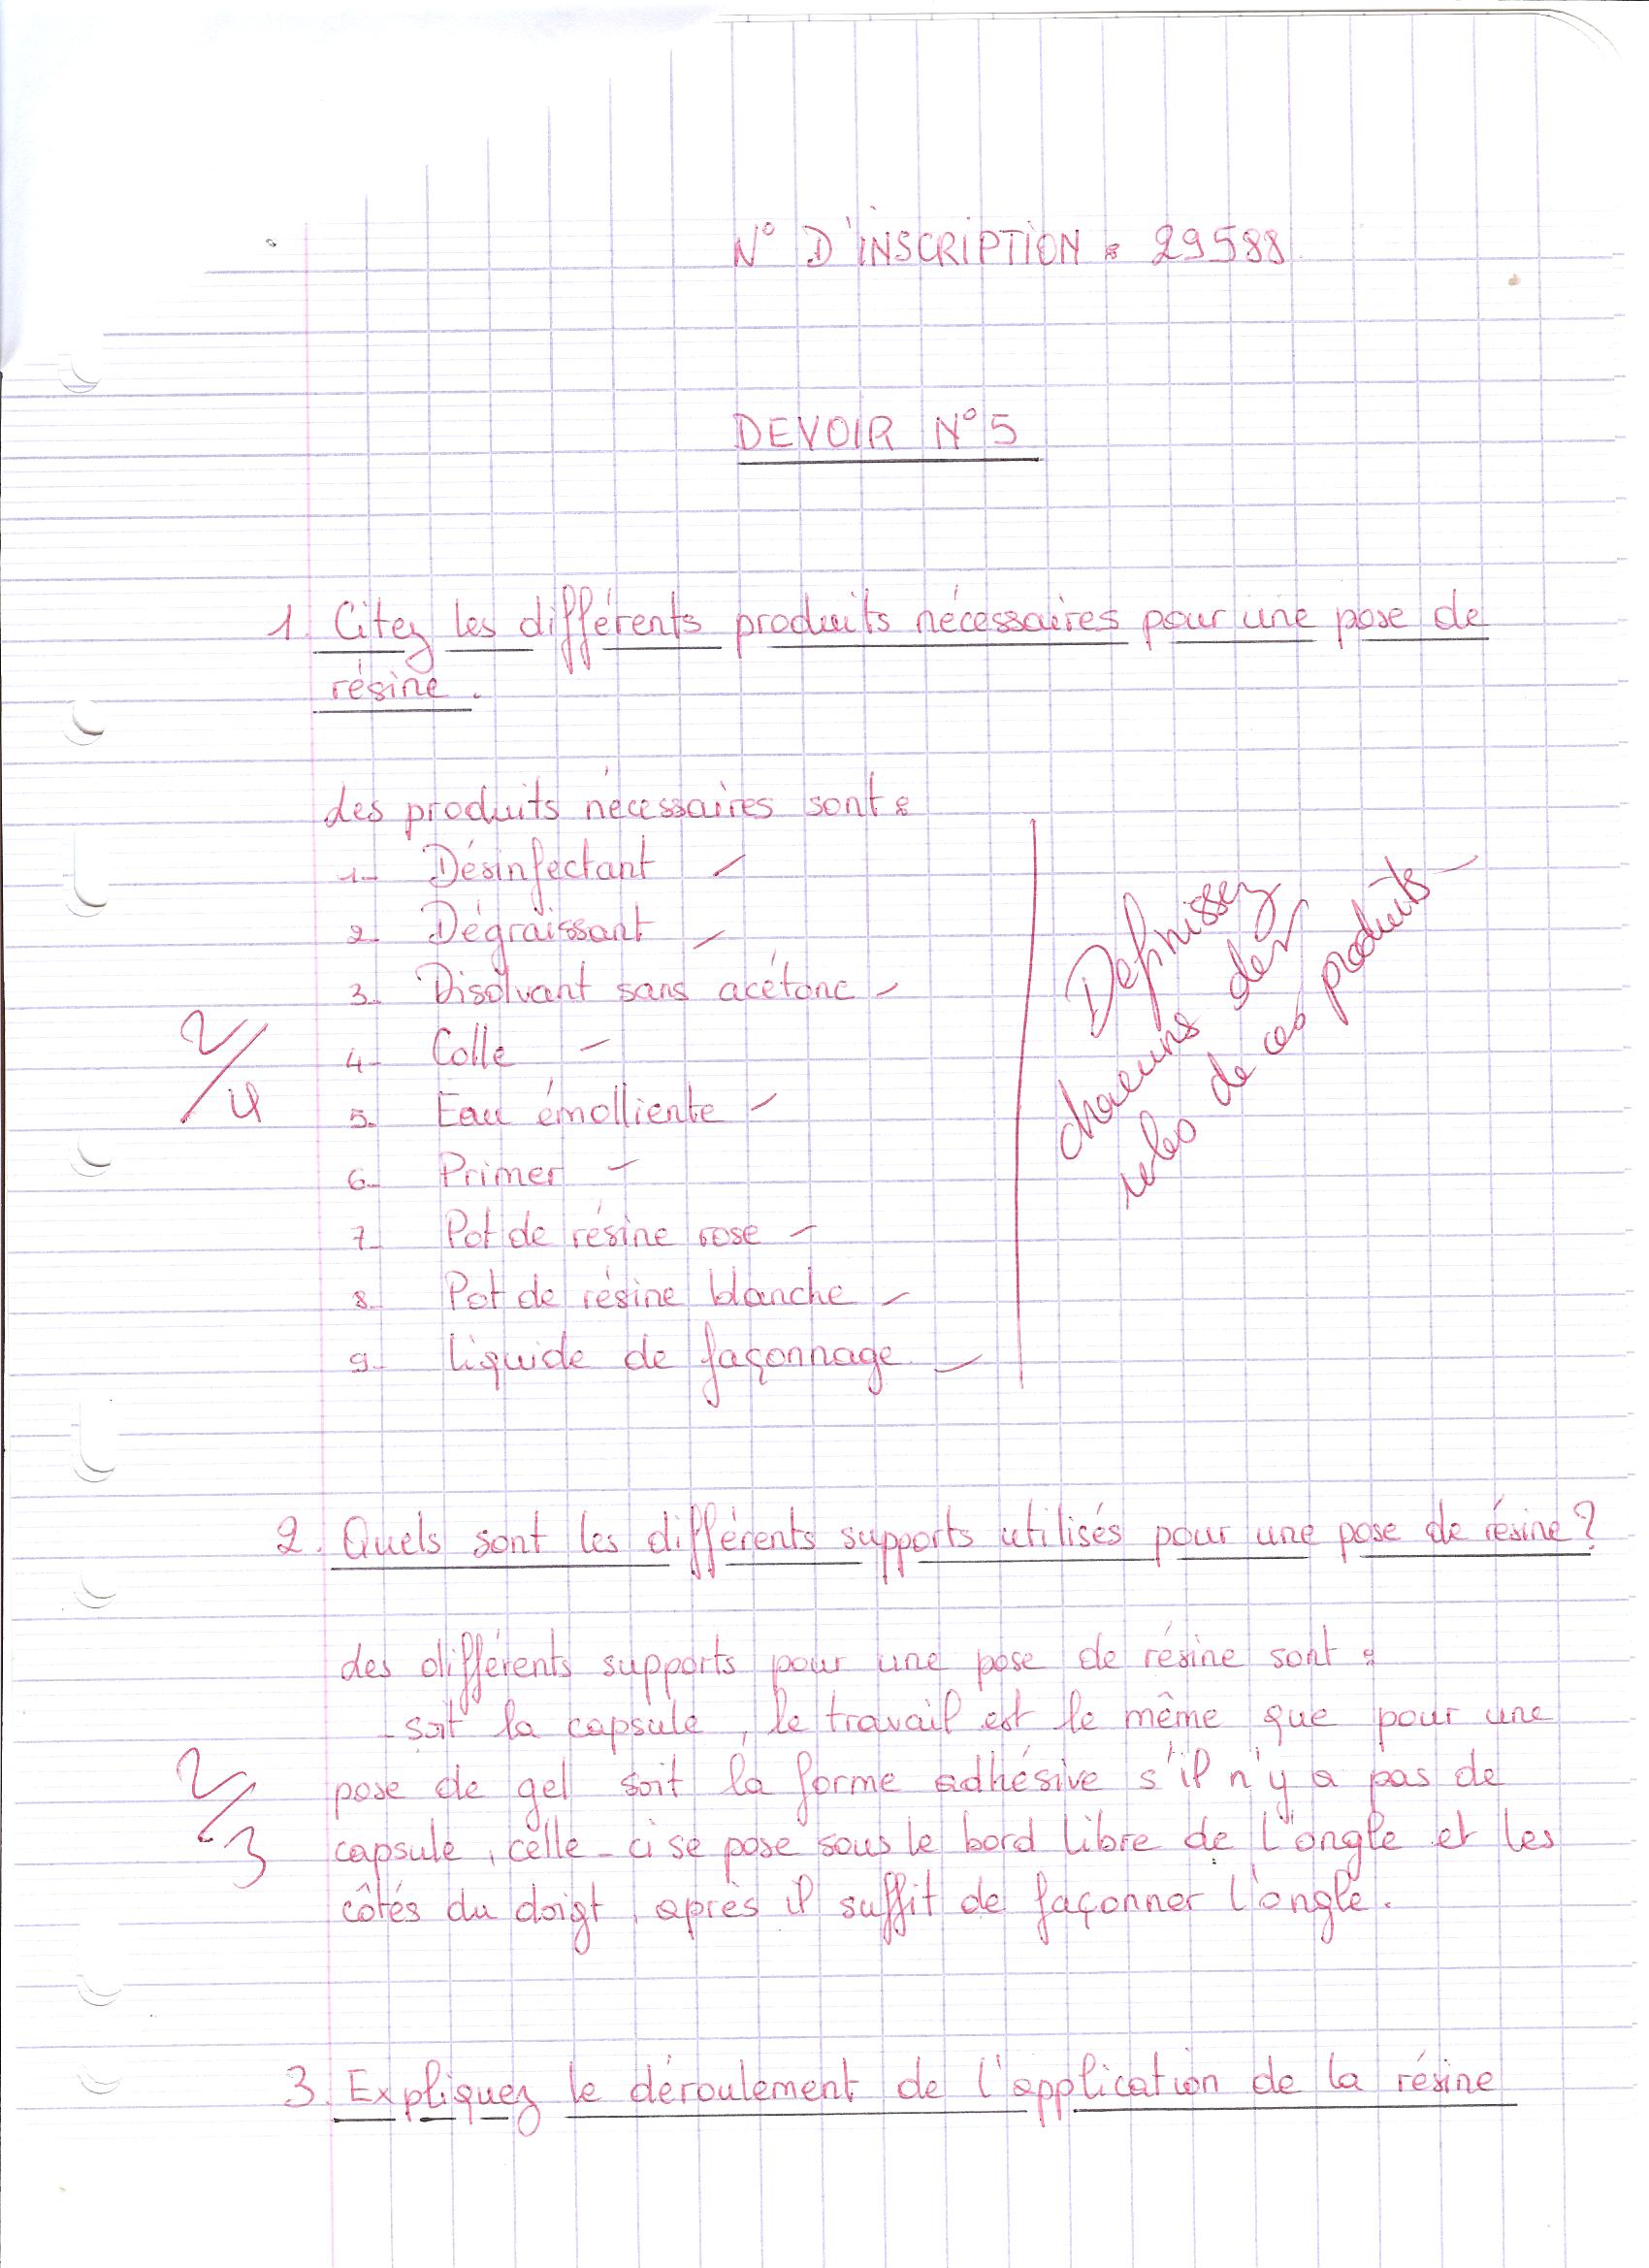 N° D'INSCRIPTION : 29588
DEVOIR N°5
1. Citez les différents produits nécessaires pour une pose de
résine.
Les produits nécessaires sont :
1- Désinfectant
2- Dégraissant
3- Disolvant sans acétone
4- Colle
5- Eau émolliente
6- Primer
7- Pot de résine rose
8- Pot de résine blanche
9- Liquide de façonnage
2/4
Definissez
chacuns des
roles de ces produits
2. Quels sont les différents supports utilisés pour une pose de résine ?
Les différents supports pour une pose de résine sont :
- soit la capsule, le travail est le même que pour une
pose de gel soit la forme adhésive s'il n'y a pas de
capsule, celle-ci se pose sous le bord libre de l'ongle et les
côtés du doigt, après il suffit de façonner l'ongle.
2/3
3. Expliquez le déroulement de l'application de la résine